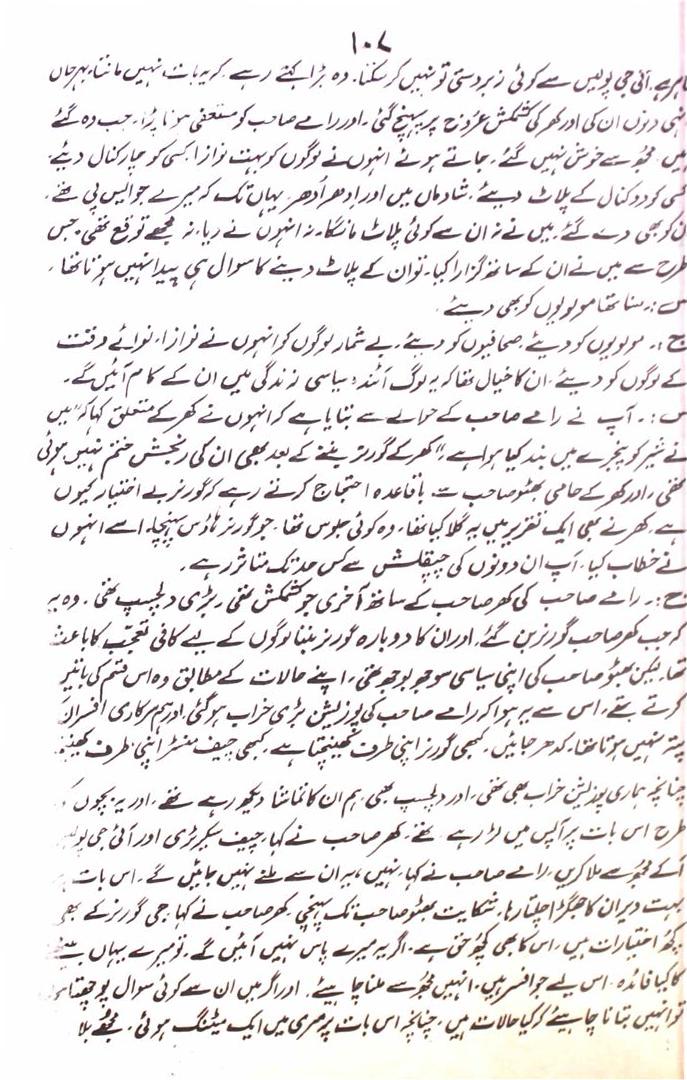 ۱۰۷
ہر ہے۔ آئی جی پولیس سے کوئی زبردستی تو نہیں کر سکتا۔ وہ بڑا کہتے رہے۔ کہ یہ بات نہیں مانتا، بہرحال
نہی دنوں ان کی اور کھر کی کشمکش عروج پر پہنچ گئی، اور رامے صاحب کو مستعفی ہونا پڑا، جب وہ گئے
ہیں، مجھ سے خوش نہیں گئے، جاتے ہوئے انہوں نے لوگوں کو بہت نوازا، کسی کو چار کنال دیئے،
کسی کو دو کنال کے پلاٹ دیئے، شادماں میں اور ادھر اُدھر، یہاں تک کہ میرے جو ایس پی تھے،
ن کو بھی دے گئے۔ میں نے نہ ان سے کوئی پلاٹ مانگا، نہ انہوں نے دیا، نہ مجھے توقع تھی، جس
طرح سے میں نے ان کے ساتھ گزارا کیا، تو ان کے پلاٹ دینے کا سوال ہی پیدا نہیں ہوتا تھا۔
س:۔ سنا تھا مولویوں کو بھی دیئے
ج:۔ مولویوں کو دیئے، صحافیوں کو دیئے، بے شمار لوگوں کو انہوں نے نوازا، نوائے وقت
کے لوگوں کو دیئے، ان کا خیال تھا کہ یہ لوگ آئندہ سیاسی زندگی میں ان کے کام آئیں گے۔
س:۔ آپ نے رامے صاحب کے حوالے سے بتایا ہے کہ انہوں نے کھر کے متعلق کہا کہ "میں
نے شیر کو پنجرے میں بند کیا ہوا ہے" کھر کے گورنر بننے کے بعد بھی ان کی رنجش ختم نہیں ہوئی
تھی، اور کھر کے حامی بھٹو صاحب سے باقاعدہ احتجاج کرتے رہے کہ گورنر بے اختیار کیوں
ہے۔ کھر نے بھی ایک تقریر میں یہ گلا کیا تھا، وہ کوئی جلوس تھا، جو گورنر ہاؤس پہنچا، اسے انہوں
نے خطاب کیا، آپ ان دونوں کی چپقلش سے کس حد تک متاثر رہے۔
ج:۔ رامے صاحب کی کھر صاحب کے ساتھ آخری جو کشمکش تھی، بڑی دلچسپ تھی۔ وہ یہ
کہ جب کھر صاحب گورنر بن گئے، اور ان کا دوبارہ گورنر بننا لوگوں کے لیے کافی تعجب کا باعث
تھا، لیکن بھٹو صاحب کی اپنی سیاسی سوجھ بوجھ تھی، اپنے حالات کے مطابق وہ اس قسم کی باتیں
کرتے تھے، اس سے یہ ہوا کہ رامے صاحب کی پوزیشن بڑی خراب ہو گئی اور ہم سرکاری افسران
پتہ نہیں ہوتا تھا، کدھر جائیں، کبھی گورنر اپنی طرف کھینچتا ہے، کبھی چیف منسٹر اپنی طرف کھینچتا
چنانچہ ہماری پوزیشن خراب بھی تھی، اور دلچسپ بھی، ہم ان کا تماشا دیکھ رہے تھے، اور یہ بچوں کی
طرح اس بات پر آپس میں لڑ رہے تھے، کھر صاحب نے کہا، چیف سیکرٹری اور آئی جی پولیس
آ کے مجھ سے ملا کریں، رامے صاحب نے کہا، نہیں، یہ ان سے ملنے نہیں جائیں گے۔ اس بات پر
بہت دیر ان کا جھگڑا چلتا رہا، شکایت بھٹو صاحب تک پہنچی، کھر صاحب نے کہا، جی گورنر کے بھی
کچھ اختیارات ہیں، اس کا بھی کچھ حق ہے، اگر یہ میرے پاس نہیں آئیں گے، تو میرے یہاں بیٹھنے
کا کیا فائدہ، اس لیے جو افسر ہیں، انہیں مجھ سے ملنا چاہیئے۔ اور اگر میں ان سے کوئی سوال پوچھتا ہوں
تو انہیں بتانا چاہیئے کہ کیا حالات ہیں، چنانچہ اس بات پر مری میں ایک میٹنگ ہوئی، مجھے بلا